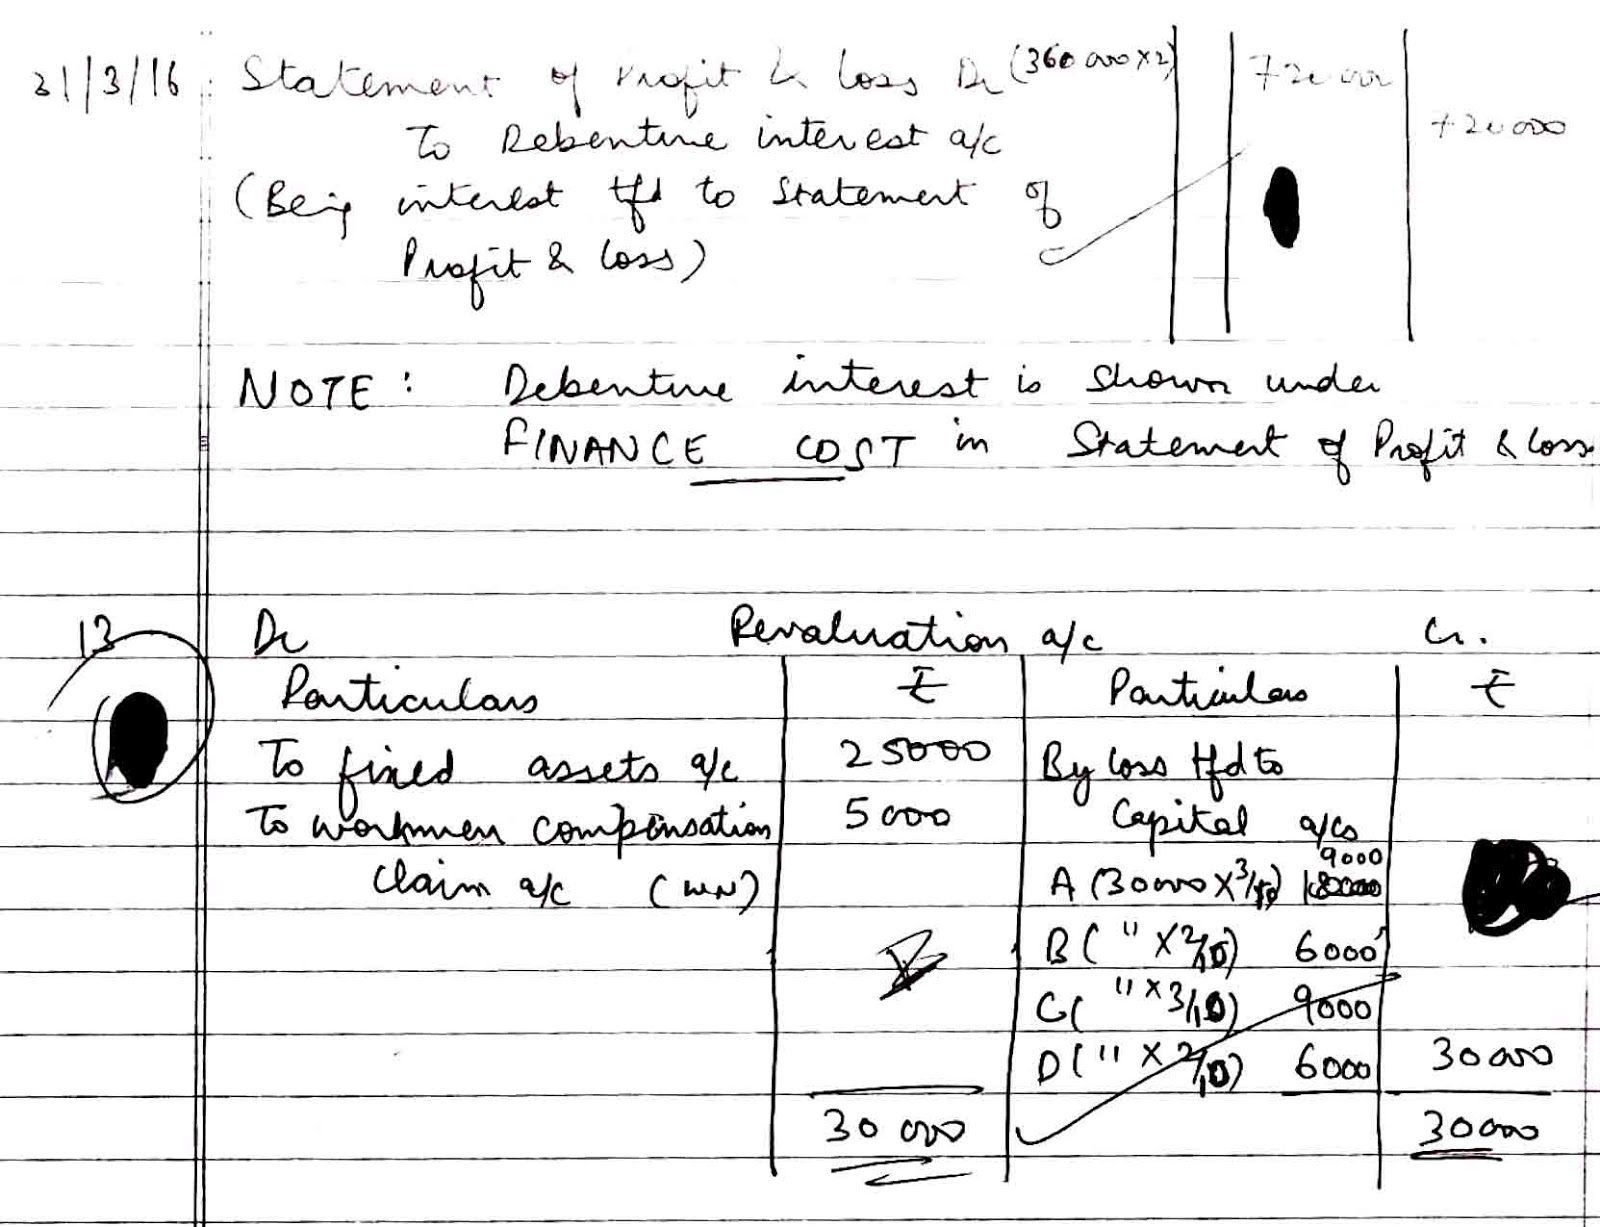 31/3/16 Statement of Profit & loss Dr (360000x2) 720000
To Debenture interest a/c 720000
(Being interest tfd to Statement of
Profit & loss)
NOTE : Debenture interest is shown under
FINANCE COST in Statement of Profit & loss
13 Dr Revaluation a/c Cr.
Particulars ₹ Particulars ₹
To fixed assets a/c 25000 By loss tfd to
To workmen compensation 5000 Capital a/cs
Claim a/c (WN) A (30000 x 3/10) 9000
B ( " x 2/10) 6000
C ( " x 3/10) 9000
D ( " x 2/10) 6000 30000
30000 30000